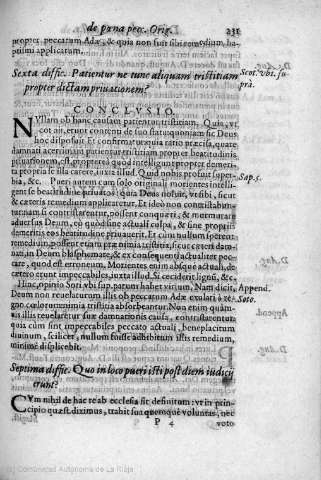 de pœna pec. Orig. 231
propter peccatum Adæ, & quia non fuit sibi concessum, ba-
ptismi applicatum.
Sexta diffic. Patientur ne tunc aliquam tristitiam
propter dictam priuationem? Scot. vbi. su-
prà.
CONCLVSIO
NVllam ob hanc causam patientur tristitiam. Quia, vt
ait, erunt contenti de suo statu quoniam sic Deus
hoc disposuit Et confirmatur quia ratio præcisa, quare
damnati acerrimam patientur tristitiam propter beatitudinis
est, propterea quod intelligunt propter demeri-
ta propria se illa carere, iuxta illud. Quid nobis profuit super- Sap. 5.
bia, &c. Pueri autem cum solo originali morientes intelli-
gent se beatitudine priuatos quia Deus noluit, vt sibi, sicut
& cæteris remedium applicaretur. Et ideò non contristabun-
tur: nam si contristarentur, possent conqueri, & murmurare
aduersus Deum, eò quod sine actuali culpa, & sine proprijs
demeritis eos beatitudine priuauerit. Et cum nullum speretur
remedium, posset etiam præ nimia tristitia, sicut cæteri dam-
nati, in Deum blasphemare, & ex consequenti actualiter pec-
care, quod est erroneum. Morientes enim absque actuali, de
cætero erunt impeccabiles, iuxta illud. Si ceciderit lignū, &c.
Hiac, opinio Soti vbi sup. parum habet virium, Nam dicit, Append.
Deum non reuelaturum illis ob peccatum Adæ exulari à re- Soto.
gno cælorum nimia tristitia absorbeantur. Non enim quam-
uis illis reuelaretur suæ damnationis causa, contristarentur
quia cùm sint impeccabiles peccato actuali, beneplacitum
diuinum, scilicet, nullum fuisse adhibitum istis remedium,
minimè displicebit.
Septima diffic. Quo in loco pueri isti post diem iudicij
erunt?
CVm nihil de hac re ab ecclesia sit definitum: vt in prin-
cipio quæst. diximus, trahit sua quemque voluntas, nec
P 4 voto
Comunidad Autónoma de La Rioja